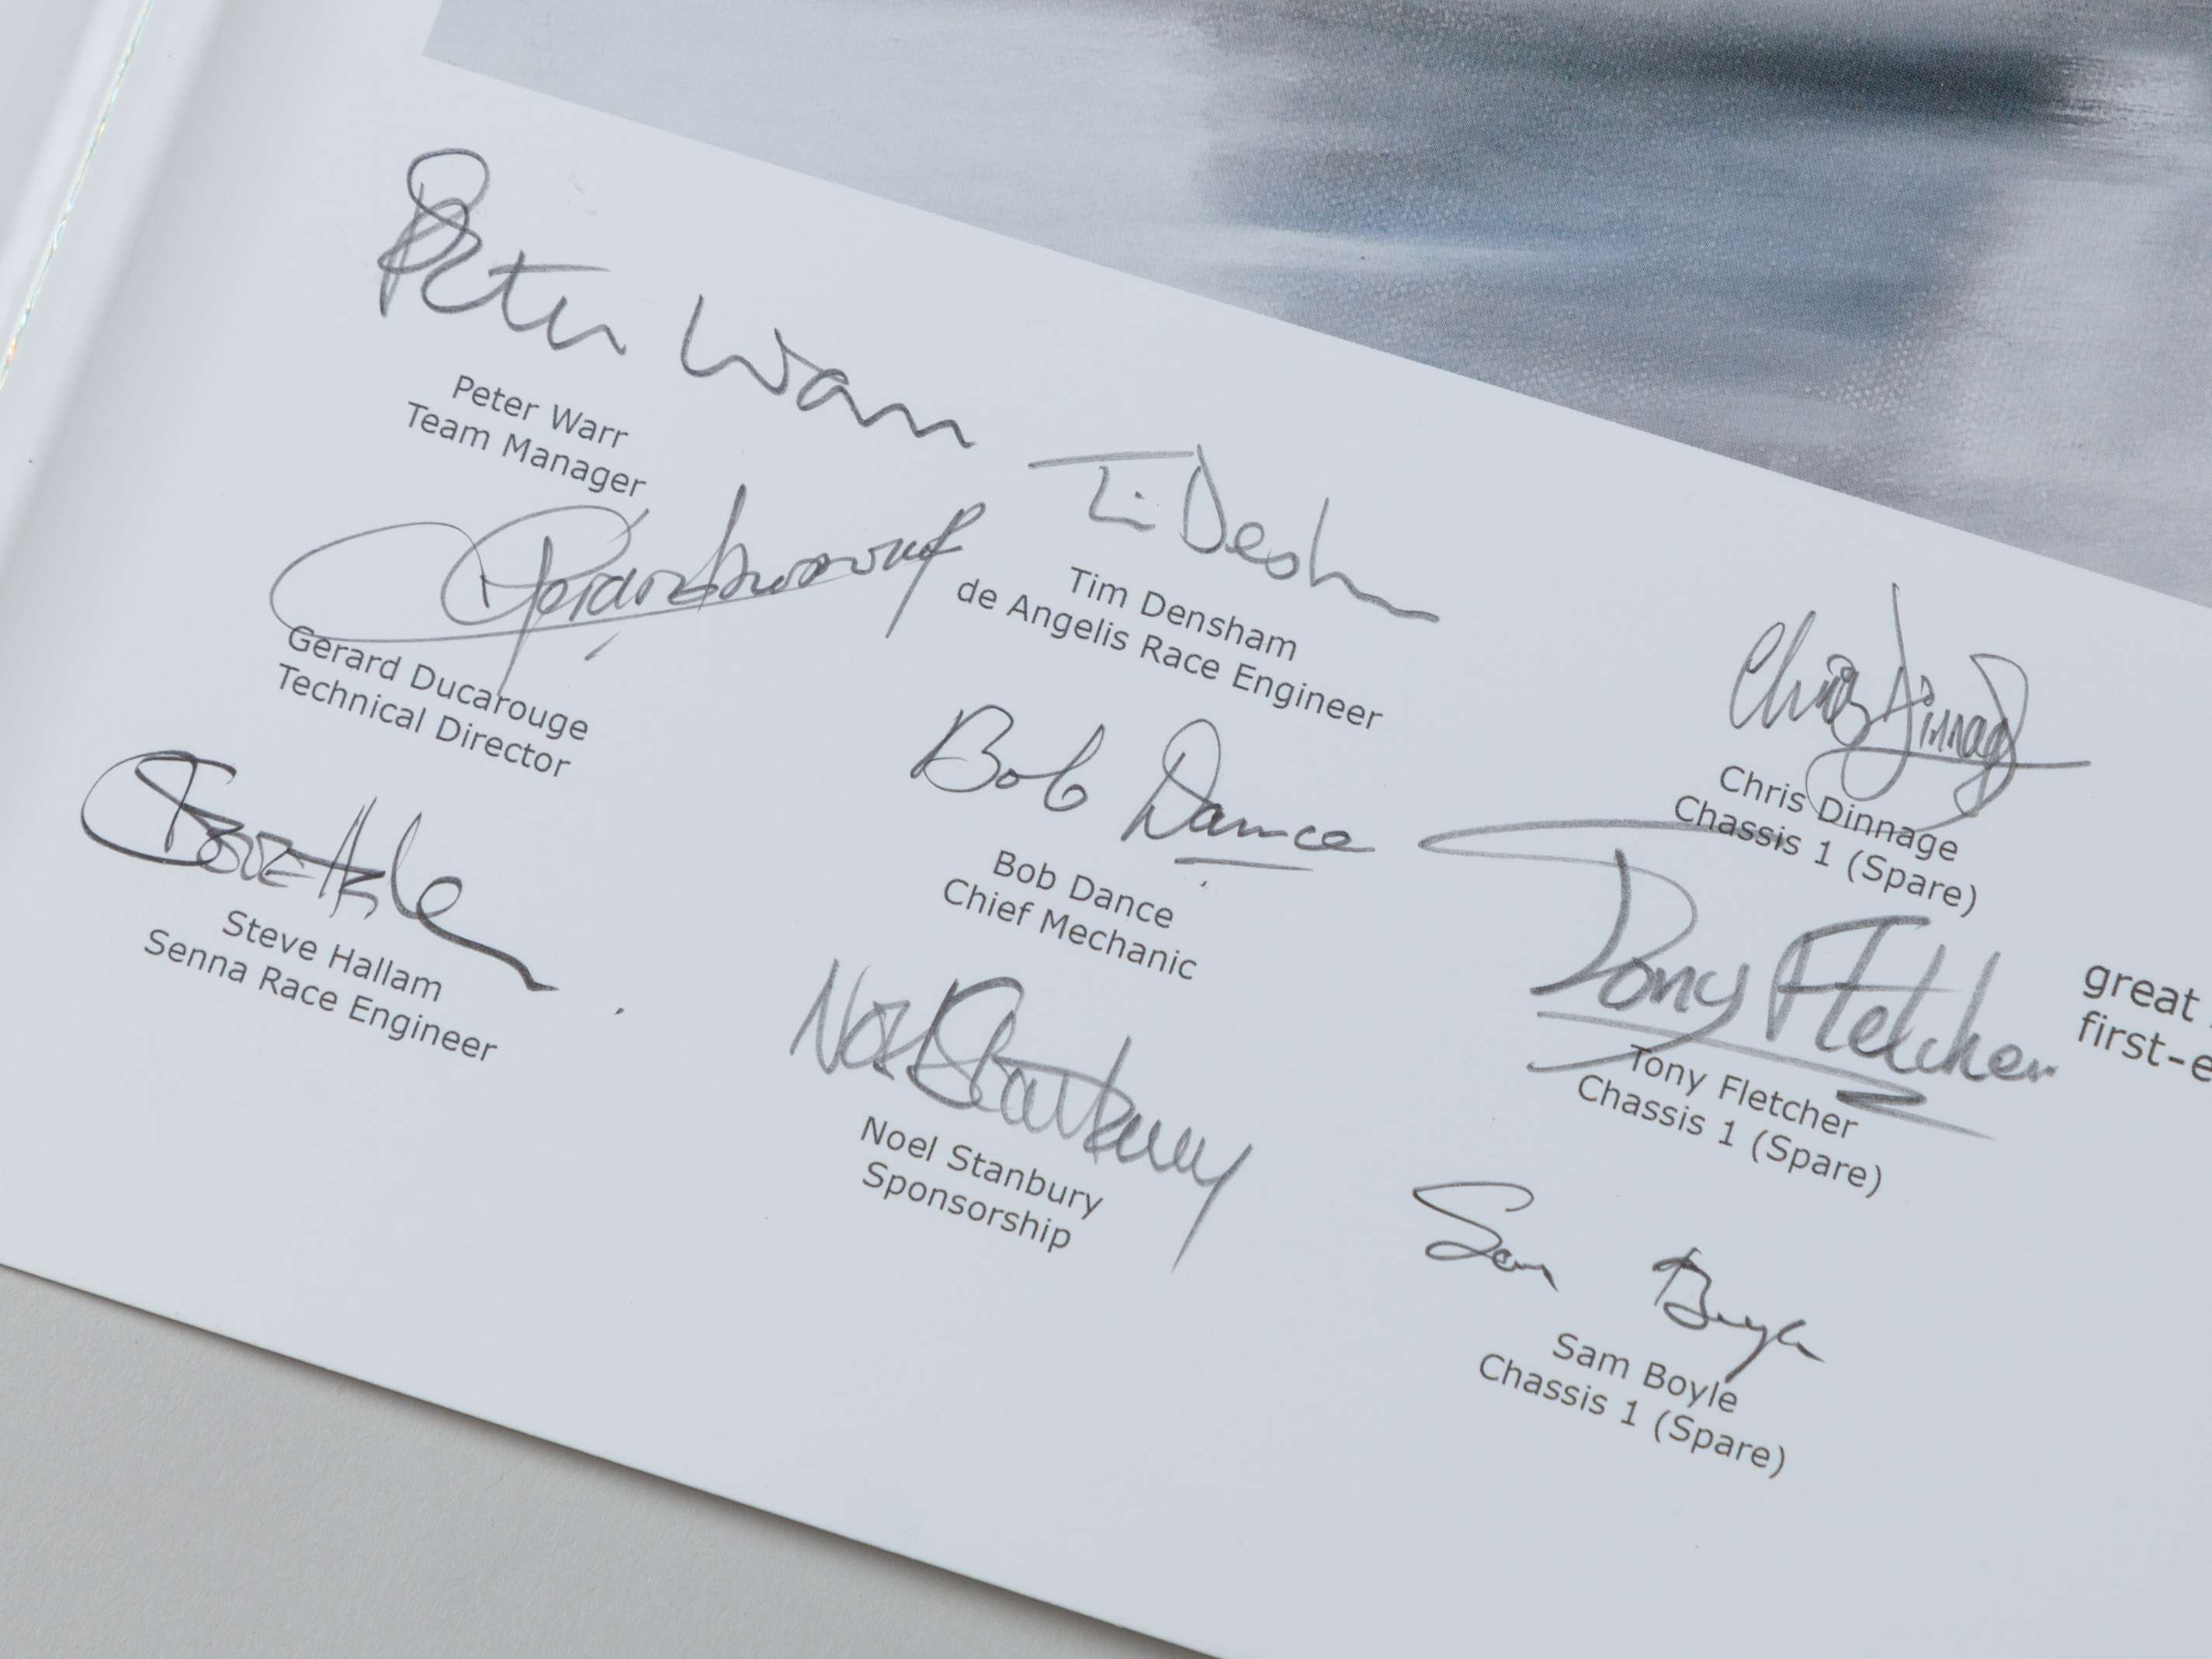 Peter Warr
Peter Warr
Team Manager
Gerard Ducarouge
Technical Director
Steve Hallam
Senna Race Engineer
Tim Densham
de Angelis Race Engineer
Bob Dance
Bob Dance
Chief Mechanic
Noel Stanbury
Noel Stanbury
Sponsorship
Chris Dinnage
Chris Dinnage
Chassis 1 (Spare)
Tony Fletcher
Tony Fletcher
Chassis 1 (Spare)
Sam Boyle
Sam Boyle
Chassis 1 (Spare)
great
first-e